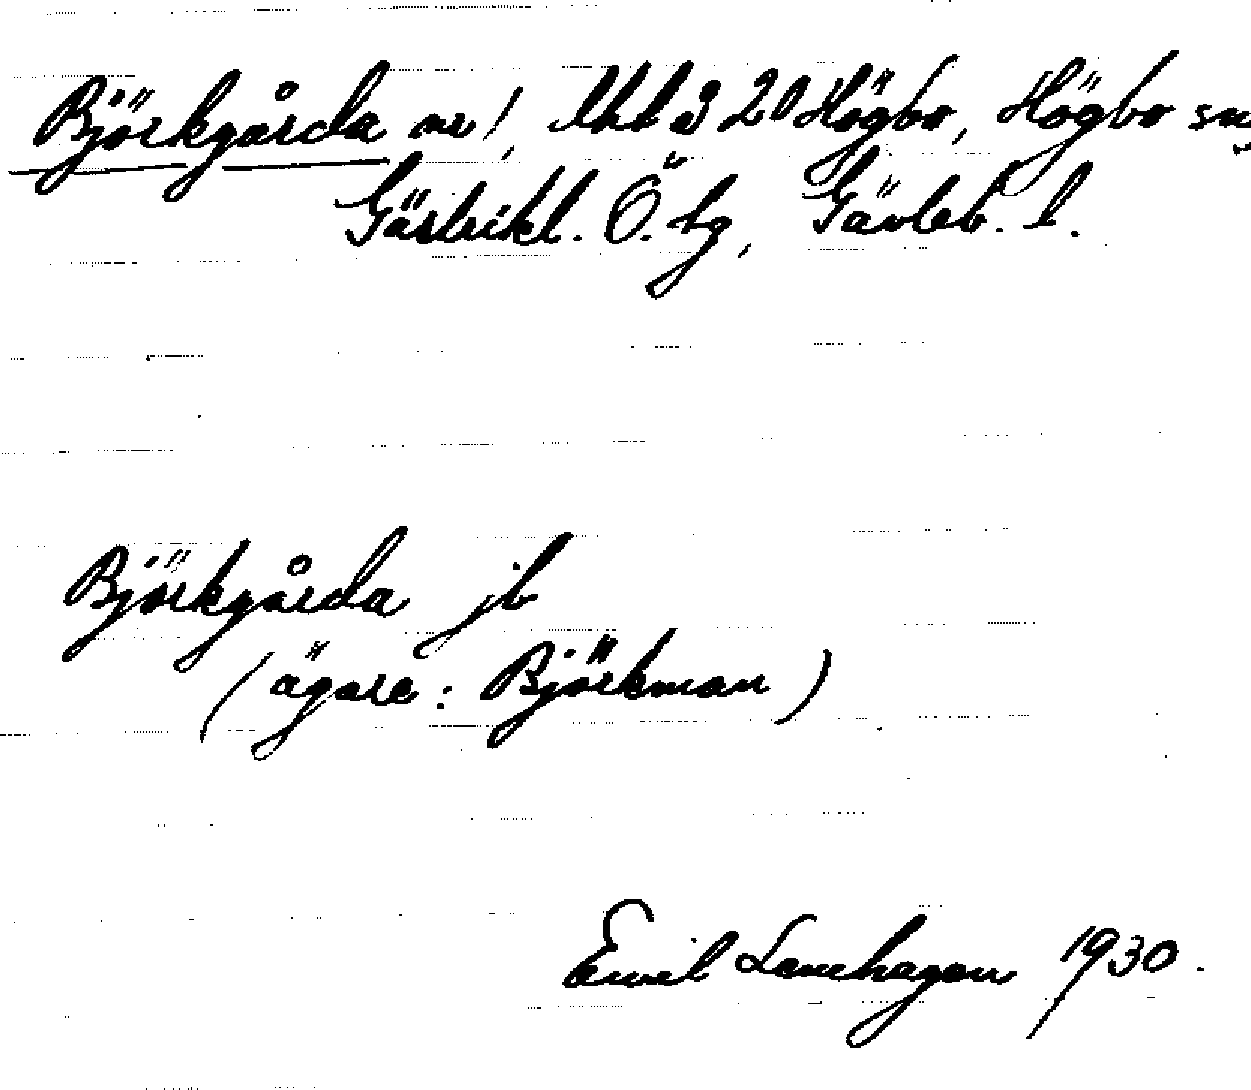 Björkgårda nr 1, Uhl å 20 Högbo, Högbo sn
Gästrikl. Ö. tg, Gävleb. l.
Björkgårda jb
(ägare: Björkman)
Emil Lanehagen 1930.